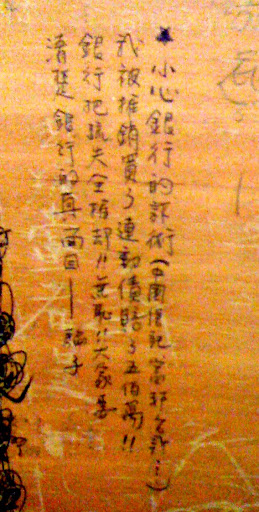 ★小心銀行的詐術(中國信託、富邦、…)
我被推銷買了連動債賠了五佰萬!!
銀行把損失全推卸!!無恥!!大家要
清楚銀行的真面目—騙子